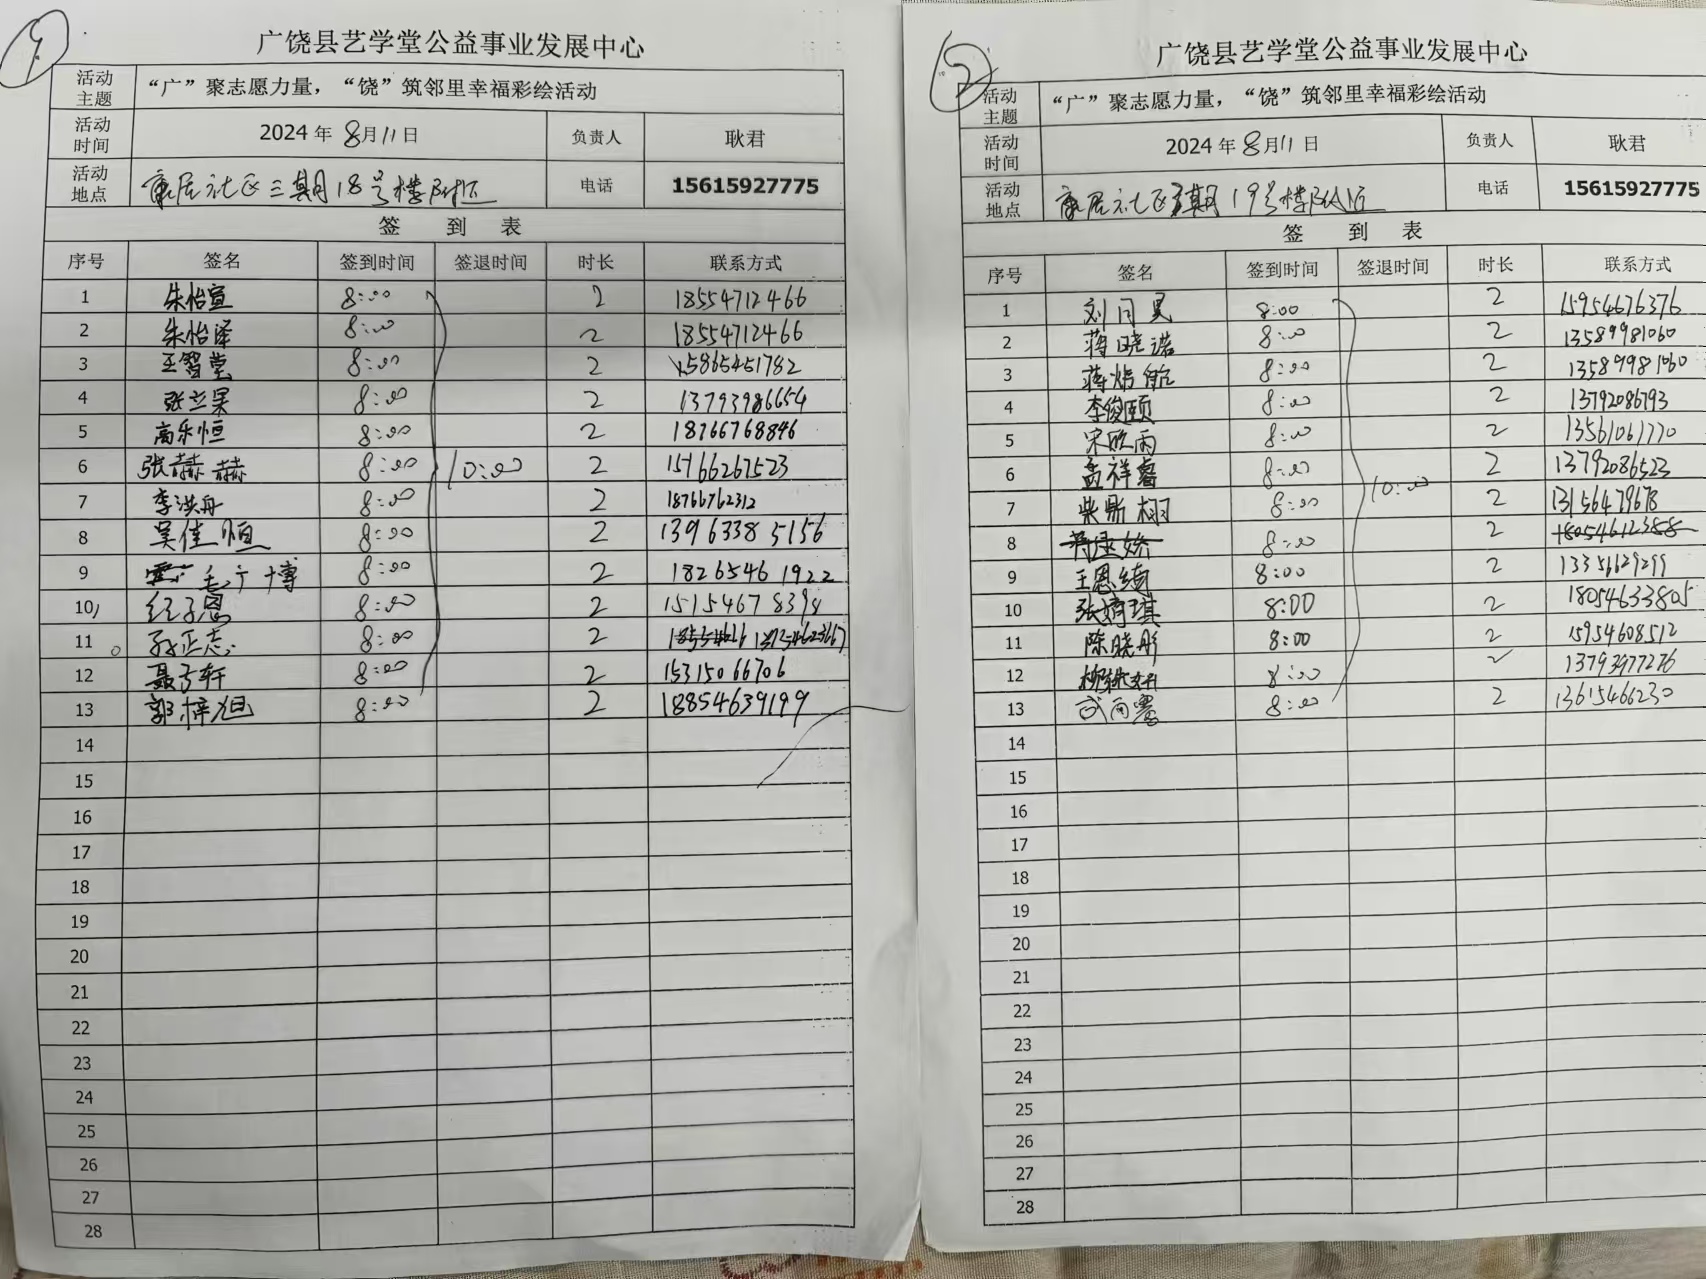 1
广饶县艺学堂公益事业发展中心
活动主题 “广”聚志愿力量，“饶”筑邻里幸福彩绘活动
活动时间 2024年8月11日 负责人 耿君
活动地点 康居社区三期18号楼附近 电话 15615927775
签到表
序号 签名 签到时间 签退时间 时长 联系方式
1 朱怡宣 8:00 2 18554712466
2 朱怡泽 8:00 2 18554712466
3 王智莹 8:00 2 15865451782
4 张兰果 8:00 2 13793986654
5 高乐恒 8:00 2 18766768846
6 张赫赫 8:00 10:00 2 15766267523
7 李洪舟 8:00 2 18766762312
8 吴佳恒 8:00 2 13963385156
9 8:00 2 18265461922
10 8:00 2 15154678398
11 孙正志 8:00 2
12 聂子轩 8:00 2 15315066706
13 郭梓旭 8:00 2 18854639199
14
15
16
17
18
19
20
21
22
23
24
25
26
27
28
2
广饶县艺学堂公益事业发展中心
活动主题 “广”聚志愿力量，“饶”筑邻里幸福彩绘活动
活动时间 2024年8月11日 负责人 耿君
活动地点 康居社区三期19号楼附近 电话 15615927775
签到表
序号 签名 签到时间 签退时间 时长 联系方式
1 8:00 2 15954676376
2 蒋晓诺 8:00 2 13589981060
3 8:00 2 13589981060
4 李俊颐 8:00 2 13792086793
5 宋欣雨 8:00 2 13561061770
6 孟祥睿 8:00 2 13792086523
7 柴鼎栩 8:00 10:00 2 13156479678
8 8:00 2 18054612388
9 王恩绮 8:00 2 13356629299
10 张婧琪 8:00 2 18054633805
11 陈晓彤 8:00 2 15954608512
12 8:00 2 13793977276
13 武雨霏 8:00 2 13615466230
14
15
16
17
18
19
20
21
22
23
24
25
26
27
28